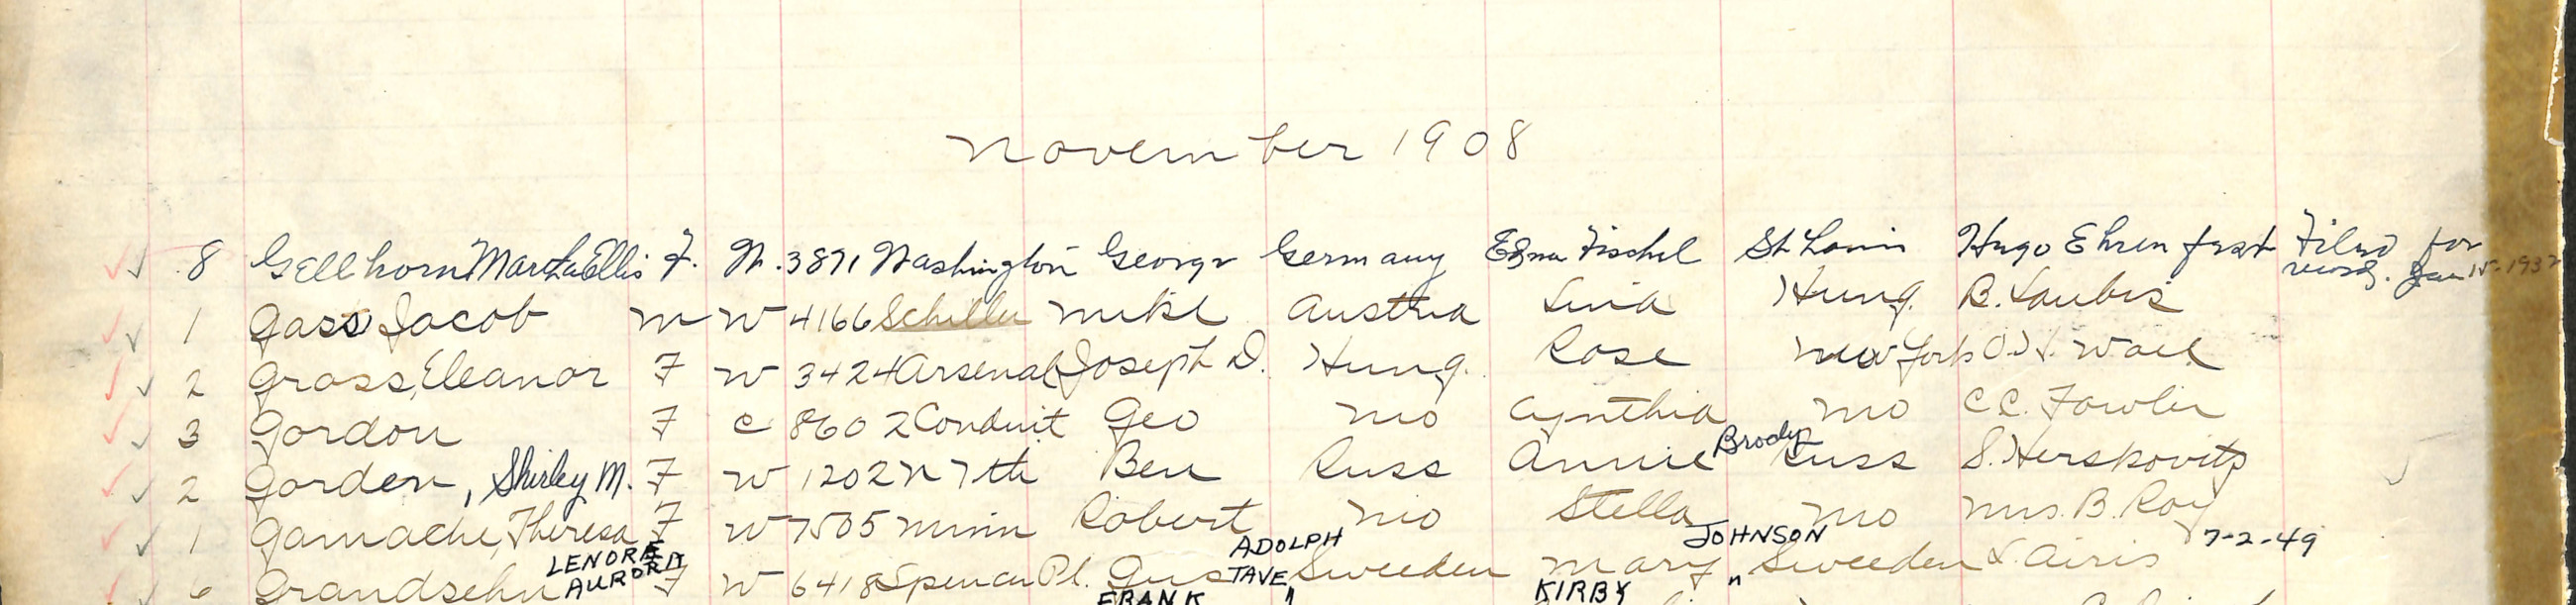 November 1908
8 Gellhorn Martha Ellis F. W. 3871 Washington George Germany Edna Fischel St Louis Hugo Ehrenfest Filed for record. Jan 15-1932
1 Gass Jacob M W 4166 Schiller Mike Austria Hung. B.
2 Gross, Eleanor F W 3424 Arsenal Joseph D. Hung. Rose New York O.H. Wall
3 Gordon F C 8602 Conduit Geo Mo Cynthia Mo C.C. Fowler
Brody
2 Gorden, Shirley M. F W 1202 N 7th Ben Russ Annie Russ S. Herskovitz
1 Gamache, Theresa F W 7505 Minn Robert Mo Stella Mo Mrs. B. Roy
LENORE ADOLPH JOHNSON 7-2-49
6 Grandsehn AURORA F W 6418 Spencer Pl. Gus TAVE Sweeden Mary " Sweeden
FRANK " KIRBY